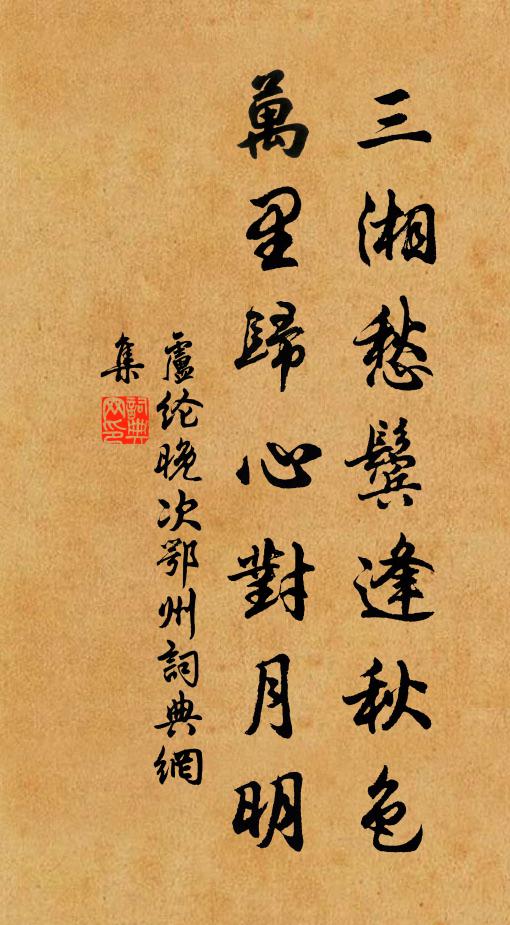 三湘愁鬓逢秋色
萬里歸心對月明
盧纶晚次鄂州詞典網
集
詞典网印